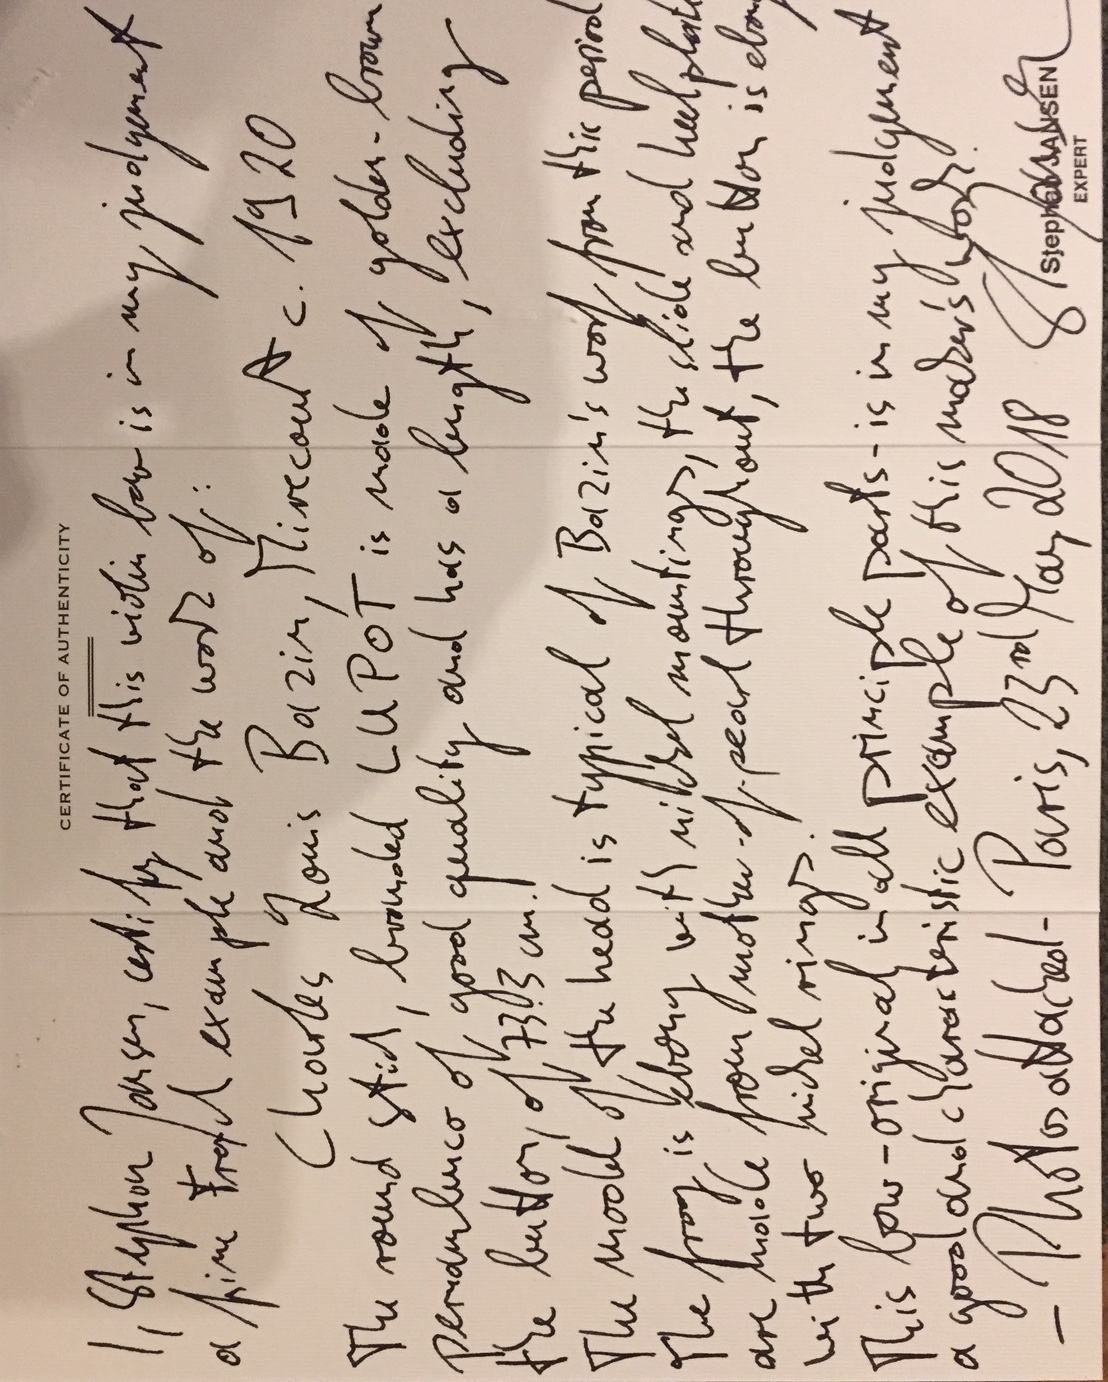 CERTIFICATE OF AUTHENTICITY
I, Stephan Jansen, certify that this violin bow is in my judgement
a fine French example and the work of:
Charles Louis Bazin, Mirecourt c. 1920
The round stick, branded LUPOT is made of golden-brown
Pernambuco of good quality and has a length, excluding
the button, of 73.3 cm.
The model of the head is typical of Bazin's work from this period
The frog is ebony with nickel mountings, the slide and heelplate
are made from mother-of-pearl throughout, the button is ebony
with two nickel rings.
This bow-original in all principle parts-is in my judgement
a good and characteristic example of this maker's work.
- Photos attached - Paris, 23rd May 2018
Stephan JANSEN
EXPERT